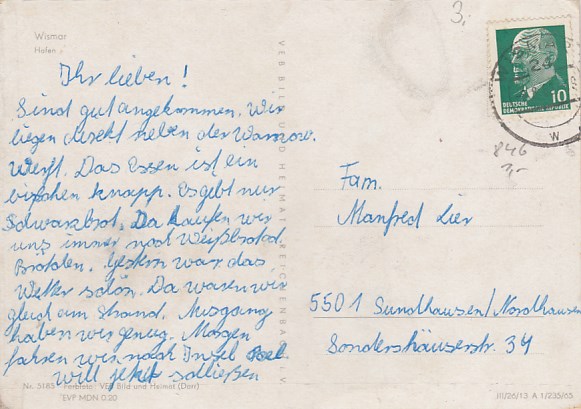 Wismar
Hafen
Ihr lieben!
Sind gut angekommen. Wir
liegen direkt neben der Warnow.
Werft. Das Essen ist ein
bischen knapp. Es gibt nur
Schwarzbrot. Da kaufen wir
uns immer noch Weißbrot od.
Brötchen. Gestern war das
Wetter schön. Da waren wir
gleich am Strand. Ausgang
haben wir genug. Morgen
fahren wir nach Insel Poel.
will jetzt schließen
Nr. 5185 Farbfoto: VEB Bild und Heimat (Darr)
EVP MDN 0.20
VEB BILD UND HEIMAT REICHENBACH I. V.
3,
DEUTSCHE
DEMOKRATISCHE REPUBLIK
10
W
846
3,-
Fam.
Manfred Lier
5501 Sundhausen/Nordhausen
Sondershäuserstr. 34
III/26/13 A 1/235/65